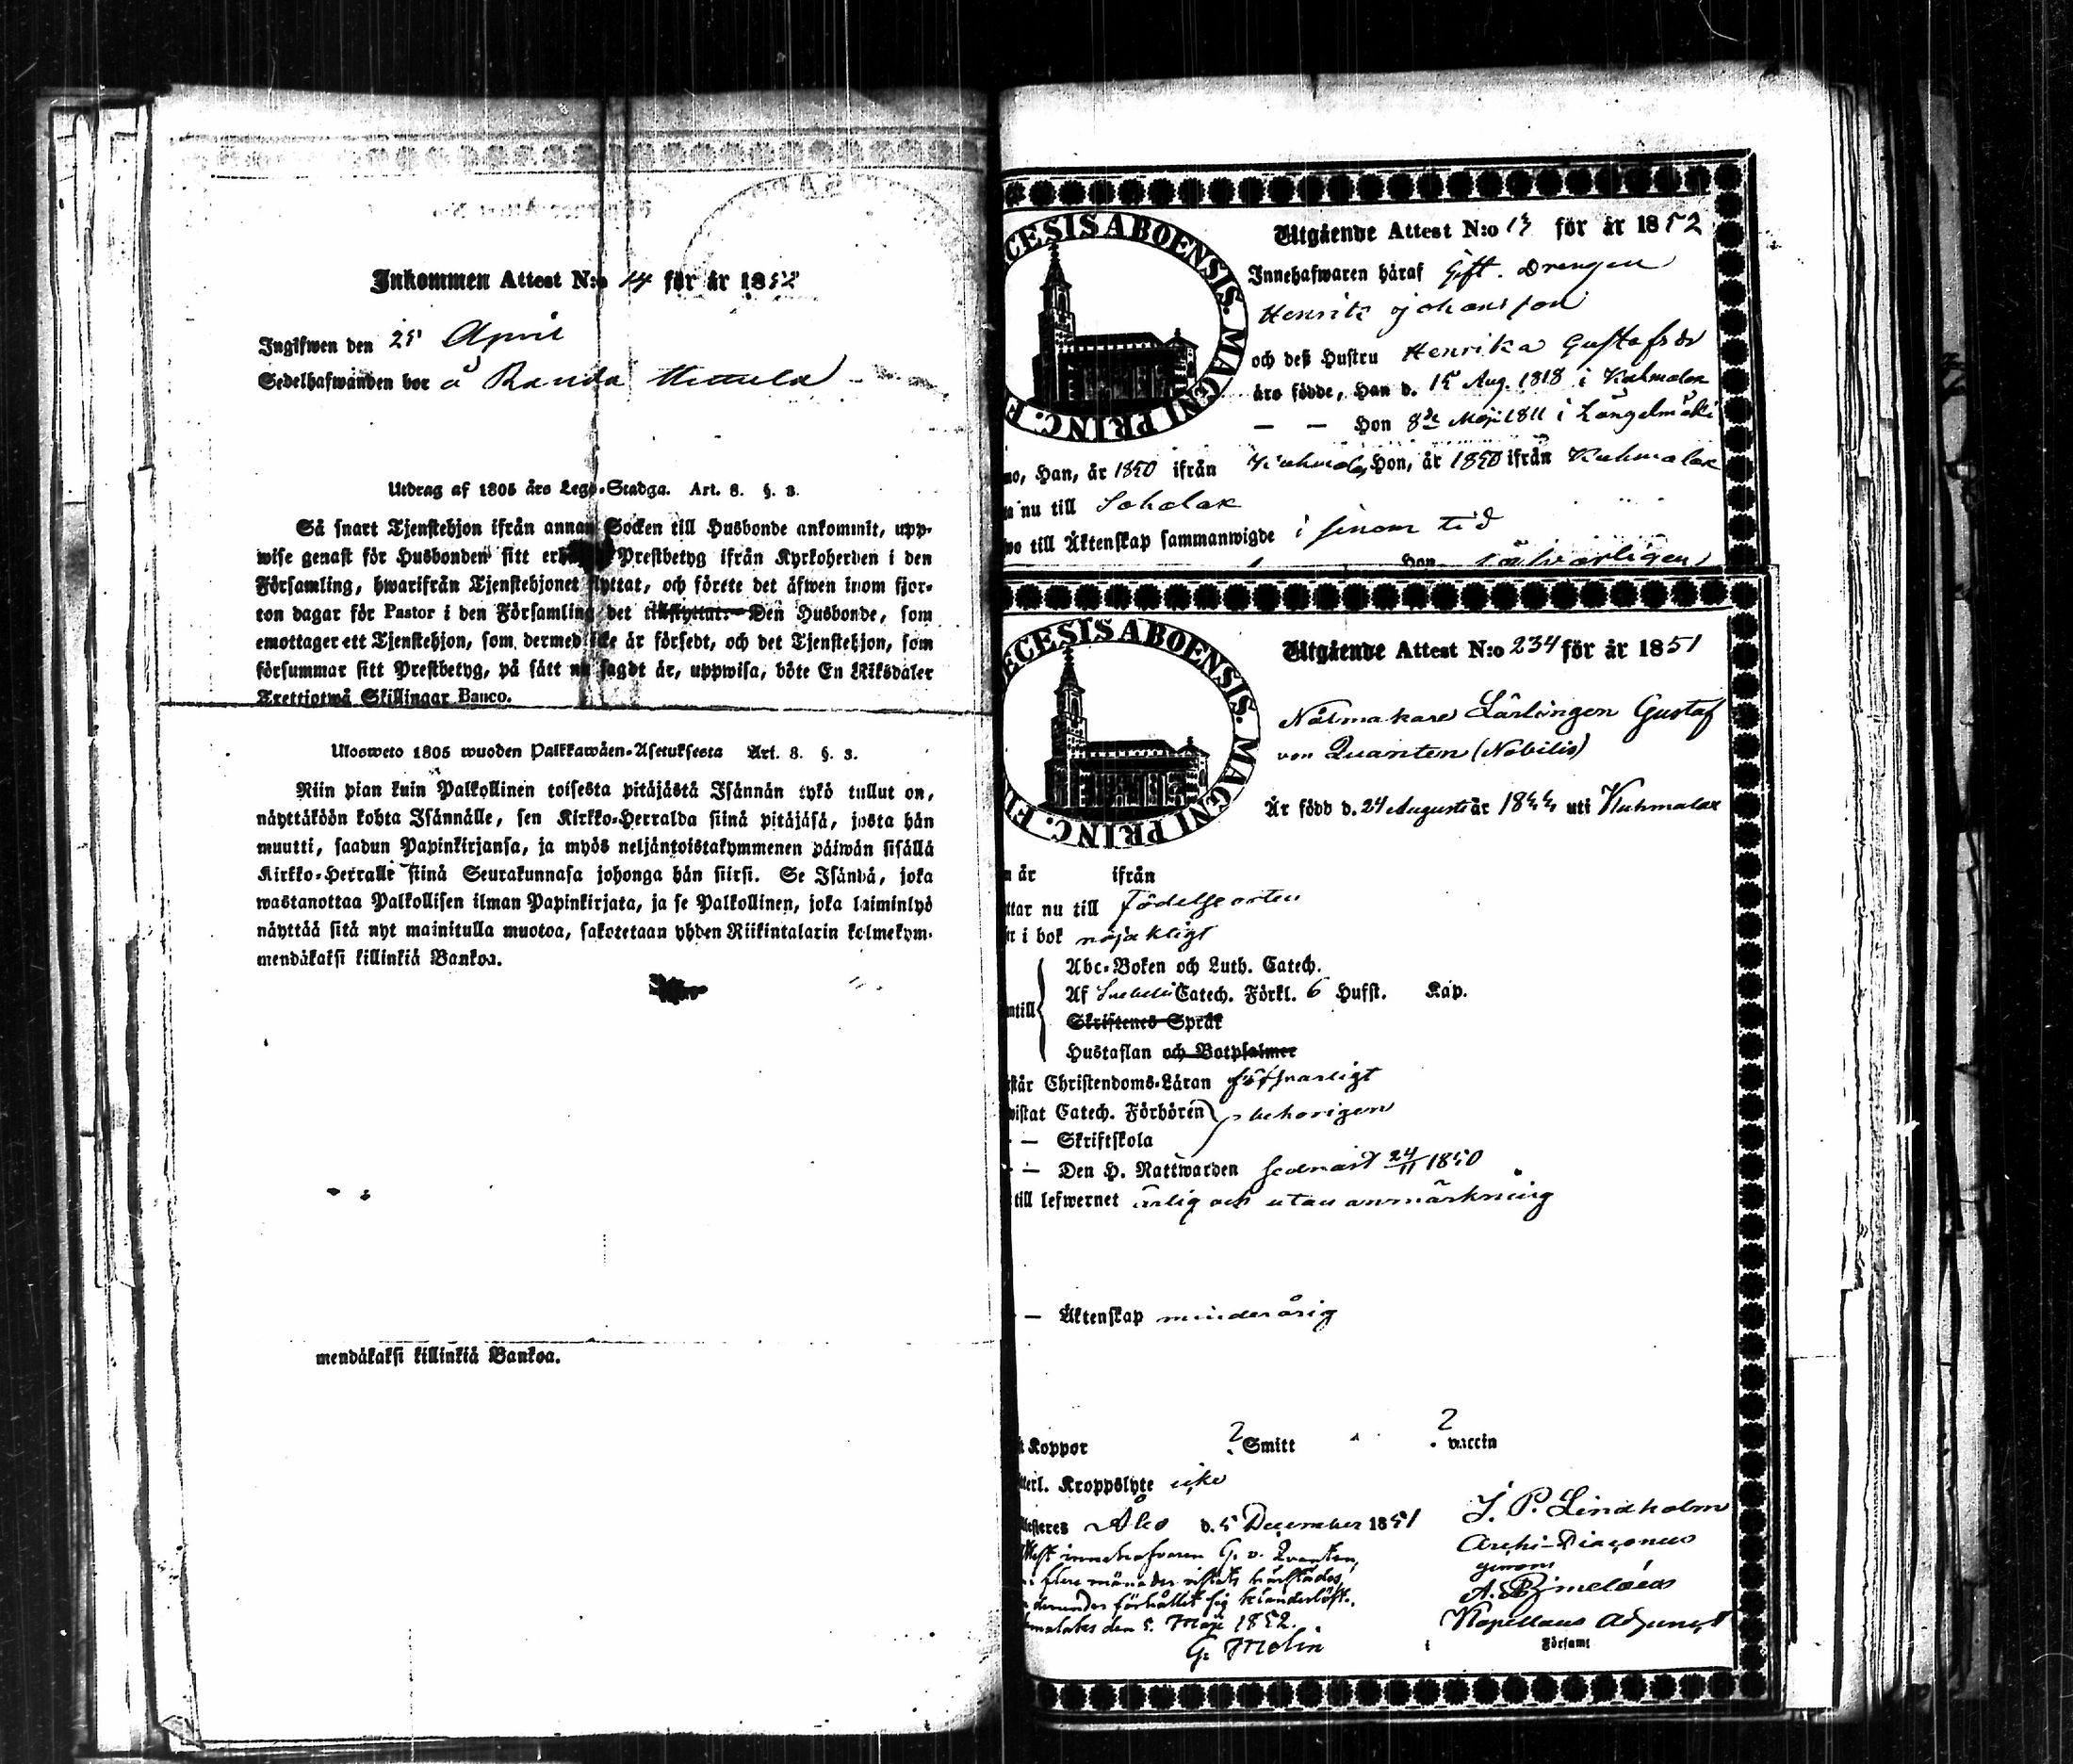 Inkommen Attest N:o 14 för år 1852
Ingifwen den 25 April
Sedelhafwanden bor å Randa
Utdrag af 1805 års Lego-Stadga. Art. 8. §. 3.
Så snart Tjenstehjon ifrån annan Socken till Husbonde ankommit, upp-
wise genast för Husbonden sitt Prestbetyg ifrån Kyrkoherden i den
Församling, hwarifrån Tjenstehjonet flyttat, och förete det äfwen inom fjor-
ton dagar för Pastor i den Församling det Den Husbonde, som
emottager ett Tjenstehjon, som dermed icke är försedt, och det Tjenstehjon, som
försummar sitt Prestbetyg, på sätt nu sagdt är, uppwisa, böte En Riksdaler
Trettiotwå Skillingar Banco.
Ulosweto 1805 wuoden Palkkawäen-Asetuksesta Art. 8. §. 3.
Niin pian kuin Palkollinen toisesta pitäjästä Isännän tykö tullut on,
näyttäköön kohta Isännälle, sen Kirkko-Herralda siinä pitäjäsä, josta hän
muutti, saadun Papinkirjansa, ja myös neljäntoistakymmenen päiwän sisällä
Kirkko-Herralle siinä Seurakunnasa johonga hän siirsi. Se Isändä, joka
wastanottaa Palkollisen ilman Papinkirjata, ja se Palkollinen, joka laiminlyö
näyttää sitä nyt mainitulla muotoa, sakotetaan yhden Riikintalarin kolmekym-
mendäkaksi killinkiä Bankoa.
mendäkaksi killinkiä Bankoa.
CESIS ABOENSIS. MAGNI PRINC. F
Utgående Attest N:o 13 för år 1852
Innehafwaren häraf Gift. Drengen
Henrik Johansson
och deß Hustru Henrika Gustafsdr
äro födde, Han d. 15 Aug. 1818 i Kuhmalax
— — Hon 8de Maji 1811 i Längelmäki
mo, Han, år 1850 ifrån Kuhmalax, Hon, år 1850 ifrån Kuhmalax
nu till Sahalax
wo till Äktenskap sammanwigde i sinom tid
Hon
ECESIS ABOENSIS. MAGNI PRINC. FI
Utgående Attest N:o 234 för år 1851
Nålmakare Lärlingen Gustaf
von Quanten (Nobilis)
Är född d. 24 Augusti år 1833 uti Kuhmalax
år ifrån
ttar nu till Födelseorten
i bok nöjaktigt
Abc-Boken och Luth. Catech.
Af Svebelii Catech. Förkl. 6 Hufst. Kap.
ntill
Skriftenes Språk
Hustaflan och Botpsalmer
står Christendoms-Läran försvarligt
wistat Catech. Förhören behörigen
— Skriftskola
— Den H. Nattwarden sednast 24/11 1850
till lefwernet ärlig och utan anmärkning
— Äktenskap minderårig
Koppor ? Smitt ? vaccin
terl. Kroppslyte icke
testeres Åbo d. 5 December 1851 J. P. Lindholm
Archi-Diaconus
Attest innehafvaren G. v. Quanten,
flere månader vistats härstädes,
derunder förhållit sig klanderlöst.
malaks den 5. Maji 1852.
Kapellans Adjunct
G. Molin
Församl